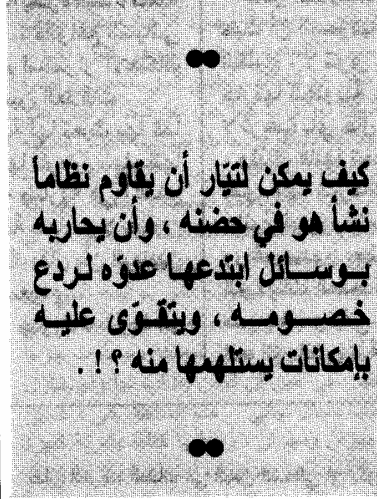 كيف يمكن لتيّار أن يقاوم نظاماً
نشأ هو في حضنه ، وأن يحاربه
بـوســـائل ابتدعهـا عدوّه لـردع
خـصـــومـــه ، ويتقـوّى عليـه
بإمكانات يستلهمها منه ؟ ! .